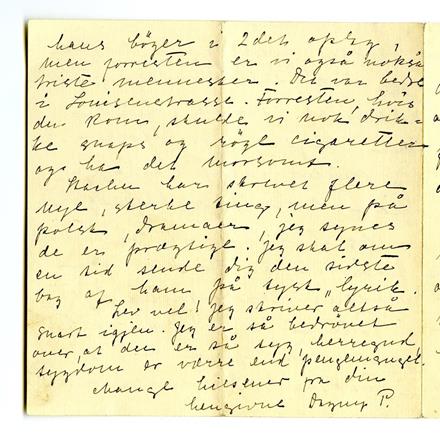 hans bøger i 2det oplag,
men forresten er vi også nokså
triste mennesker. Det var bedre
i Louisenstrasse. Forresten, hvis
du kom, skulde vi nok drik-
ke snaps og røge cigaretter
og ha det morsomt.
Stachu har skrevet flere
nye, sterke ting, men på
polsk, dramaer, jeg synes
de er prægtige. Jeg skal om
en tid sende dig den sidste
bog af ham på tysk „lyrik.
Lev vel! Jeg skriver altså
snart igjen. Jeg er så bedrøvet
over, at du er så syg, herregud
sygdom er værre end pengemangel.
Mange hilsener fra din
hengivne Dagny P.